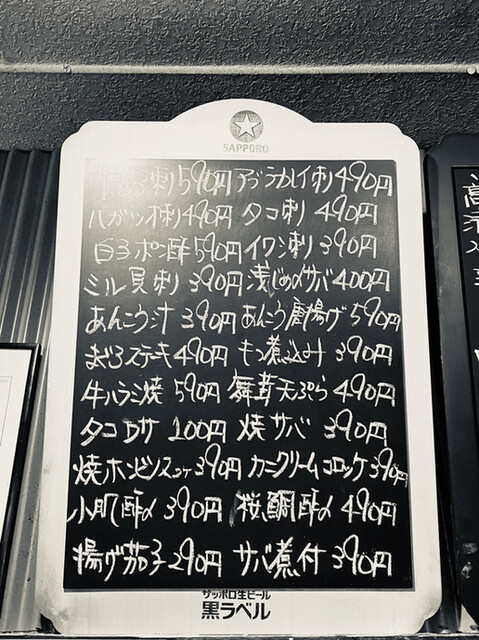 SAPPORO
刺590円 アブラカレイ刺490円
ハガツオ刺490円 タコ刺 490円
白子ポン酢590円 イワシ刺 390円
ミル貝刺 390円 浅じめ〆サバ400円
あんこう汁 390円 あんこう唐揚げ590円
まぐろステーキ490円 もつ煮込み 390円
牛ハラミ焼 590円 舞茸天ぷら 490円
タコ 100円 焼サバ 390円
焼ホンビノス 390円 カニクリームコロッケ390円
小肌酢〆 390円 桜鯛酢〆 490円
揚げ茄子290円 サバ煮付 390円
サッポロ生ビール
黒ラベル